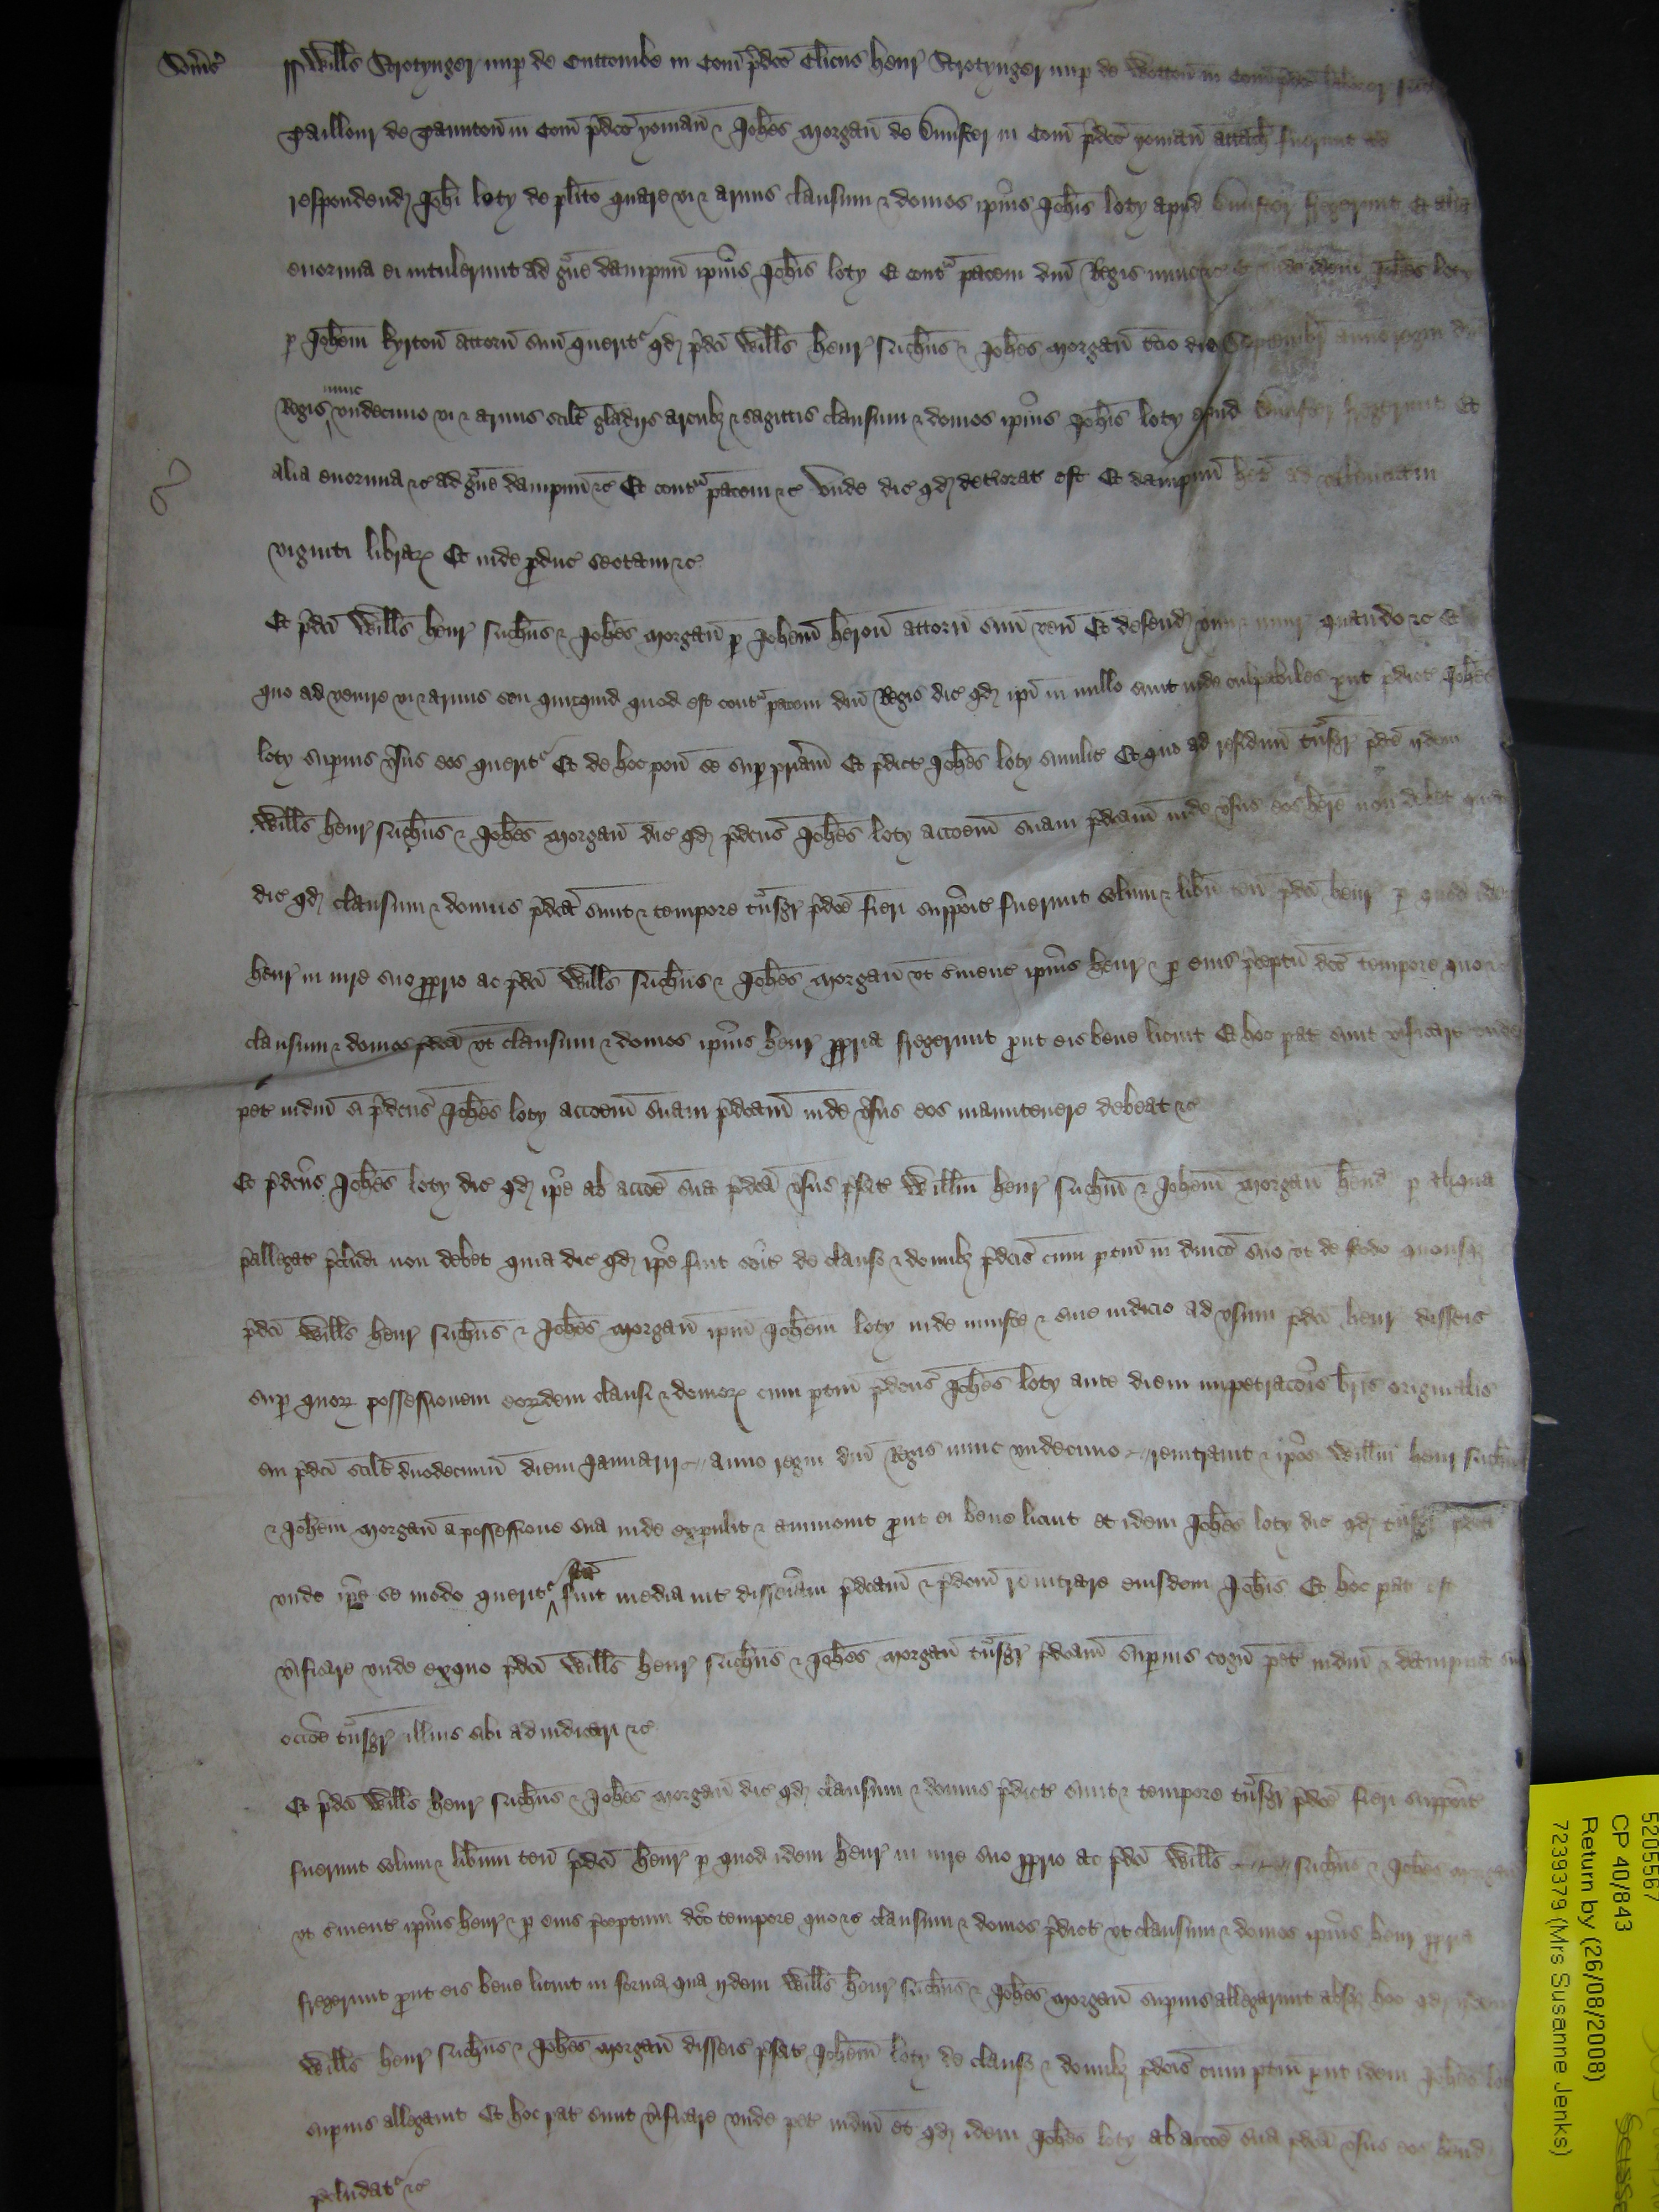 Som̃s
ss Wills Strotynger nup de Cuttombe in Com̃ p̃dc̃o Cl̃icus Henr̃ Strotynger nup de Wotton̄ in Com̃ p̃dc̃o
Taillour de Taunton̄ in Com̃ p̃dc̃o yoman̄ & Joh̃es Morgan̄ de Dunster in Com̃ p̃dc̃o yoman̄ attach̃ fuerunt ad
respondend̃ Joh̃i Loty de pl̃ito quare vi & armis clausum & domos ip̃ius Joh̃is Loty apud Dunster fregerunt Et alia
enormia ei intulerunt ad g̃ue dampnũ ip̃ius Joh̃is Loty Et cont̃a pacem dñi Regis nunc &c Et unde idem Joh̃es Loty
p Joh̃em Kyrton̄ attorñ suũ querit̃ qd̃ p̃dc̃i Wills Henr̃ Ric̃hus & Joh̃es Morgan̄ t̃cio die Septembr̃ anno regni dñi
Regis nunc vndecimo vi & armis scilt̃ gladijs arcubȝ & sagittis clausum & domos ip̃ius Joh̃is Loty apud Dunster fregerunt Et
alia enormia &c ad g̃ue dampnũ &c Et cont̃a pacem &c Vnde dic̃ qd̃ det̃iorat̃ est Et dampnũ het̃ ad valenciam
viginti librar̃ Et inde p̃duc̃ sectam &c
Et p̃dc̃i Wills Henr̃ Ric̃hus & Joh̃es Morgan̄ p Joh̃em Heron̄ attorñ suũ veñ Et defend̃ vim & iniur̃ quando &c Et
quo ad venire vi & armis seu quicquid quod est cont̃a pacem dñi Regis dic̃ qd̃ ip̃i in nullo sunt inde culpabiles p̃ut p̃dict̃ Joh̃es
Loty sup̃ius ṽsus eos querit̃ Et de hoc poñ se sup p̃riam̃ Et p̃dict̃ Joh̃es Loty similit̃ Et quo ad residuũ t̃nsgr̃ p̃dc̃e ijdem
Wills Henr̃ Ric̃hus & Joh̃es Morgan̄ dic̃ qd̃ p̃dc̃us Joh̃es Loty acc̃oem̃ suam p̃dc̃am̃ inde ṽsus eos h̃ere non debet quia
dic̃ qd̃ clausum & domus p̃dc̃a sunt & tempore t̃nsgr̃ p̃dc̃e fieri suppoit̃ fuerunt solum & lib̃um teñ p̃dc̃i Henr̃ p quod idem
Henr̃ in iure suo pprio ac p̃dc̃i Wills Ric̃hus & Joh̃es Morgan̄ vt s̃uient̃ ip̃ius Henr̃ & p eius p̃ceptũ dc̃o tempore quo &c
clausum & domos p̃dc̃a vt clausum & domos ip̃ius Henr̃ ppria fregerunt p̃ut eis bene licuit Et hoc parat̃ sunt ṽificare vnde
pet̃ iudm̃ si p̃dc̃us Joh̃es Loty acc̃oem̃ suam p̃dc̃am̃ inde ṽsus eos manutenere debeat &c
Et p̃dc̃us Joh̃es Loty dic̃ qd̃ ip̃e ab acc̃oe sua p̃dc̃a ṽsus p̃fat̃ Willm̃ Henr̃ Ric̃hum̃ & Joh̃em̃ Morgan̄ h̃end̃ p aliqua
p̃allegat̃ p̃cludi non debet quia dic̃ qd̃ ip̃e fuit seit̃ de clauso & domibȝ p̃dc̃is cum ptiñ in dñico suo vt de feodo quousqȝ
p̃dc̃i Wills Henr̃ Ric̃hus & Joh̃es Morgan̄ ip̃m̃ Joh̃em Loty inde iniuste & sine iudicio ad vsum p̃dc̃i Henr̃ disseis
sup quor̃ possessionem eor̃dem clausi & domor̃ cum ptiñ p̃dc̃us Joh̃es Loty ante diem impetrac̃ois br̃is originalis
sui p̃dc̃i scilt̃ duodecimũ diem Januarij anno regni dñi Regis nunc vndecimo reintrauit & ip̃os Willm̃ Henr̃ Ric̃hum
& Joh̃em Morgan̄ a possessione sua inde expulit & ammouit p̃ut ei bene licuit et idem Joh̃es Loty dic̃ qd̃ t̃nsgr̃ p̃dc̃a
vnde ip̃e se modo querit̃ fc̃a fuit mediante disseĩam p̃dc̃am̃ & p̃dc̃m̃ reintrare eiusdem Joh̃is Et hoc parat̃ est
ṽificare vnde exquo p̃dc̃i Wills Henr̃ Ric̃hus & Joh̃es Morgan̄ t̃nsgr̃ p̃dc̃am̃ sup̃ius cogñ pet̃ iudm̃ & dampna sua
occ̃oe t̃nsgr̃ illius sibi adiudicari &c
Et p̃dc̃i Wills Henr̃ Ric̃hus & Joh̃es Morgan̄ dic̃ qd̃ clausum & domus p̃dict̃ sunt & tempore t̃nsgr̃ p̃dc̃e fieri suppoit̃
fuerunt solum & lib̃um teñ p̃dc̃i Henr̃ p quod idem Henr̃ in iure suo pprio ac p̃dc̃i Wills Ric̃hus & Joh̃es Morgan̄
vt s̃uient̃ ip̃ius Henr̃ & p eius p̃ceptum dc̃o tempore quo &c clausum & domos p̃dict̃ vt clausum & domos ip̃ius Henr̃ ppria
fregerunt p̃ut eis bene licuit in forma qua ijdem Wills Henr̃ Ric̃hus & Joh̃es Morgan̄ sup̃ius allegarunt absqȝ hoc qd̃ ijdem
Wills Henr̃ Ric̃hus & Joh̃es Morgan̄ disseis p̃fat̃ Joh̃em̃ Loty de clauso & domibȝ p̃dc̃is cum ptiñ p̃ut idem Joh̃es Loty
sup̃ius allegauit Et hoc parat̃ sunt ṽificare vnde pet̃ iudm̃ et qd̃ idem Joh̃es Loty ab acc̃oe sua p̃dc̃a ṽsus eos h̃end̃
p̃cludat̃ &c
5205567
CP 40/843
Return by (26/08/2008)
7239379 (Mrs Susanne Jenks)